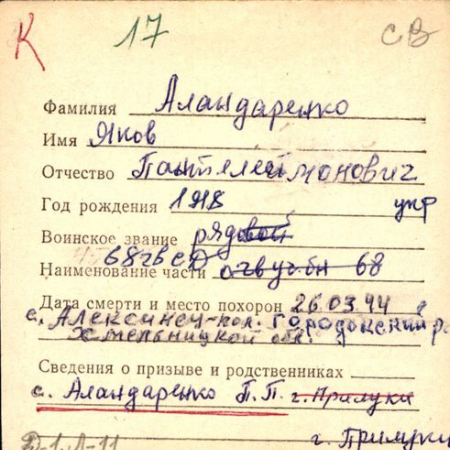 К 17 СВ
Фамилия Аландаренко
Имя Яков
Отчество Пантелеймонович
Год рождения 1918 укр
Воинское звание рядовой
68гвСД
Наименование части огвуч.бн 68
Дата смерти и место похорон 26.03.44
с. Алексинец-пол. Городокский р.
Хмельницкой обл.
Сведения о призыве и родственниках
с. Аландаренко П.П. г. Прилуки
Д-1 Л-11
г. Прилуки